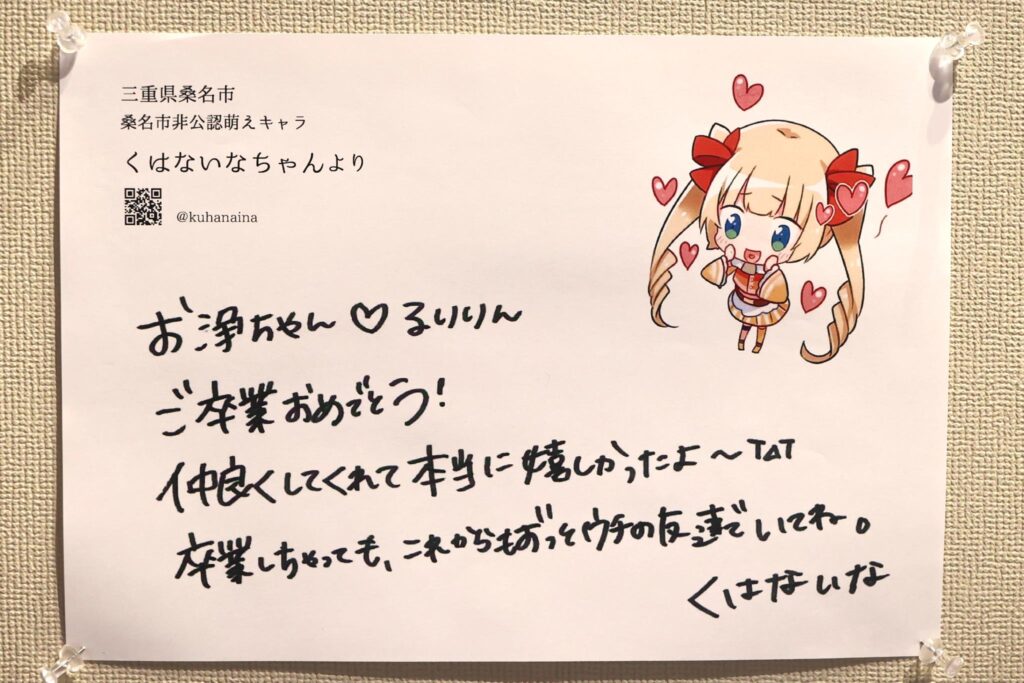 三重県桑名市
桑名市非公認萌えキャラ
くはないなちゃんより
@kuhanaina
お浄ちゃん♡るりりん
ご卒業おめでとう!
仲良くしてくれて本当に嬉しかったよ～TAT
卒業しちゃっても、これからもずっとウチの友達でいてね。
くはないな